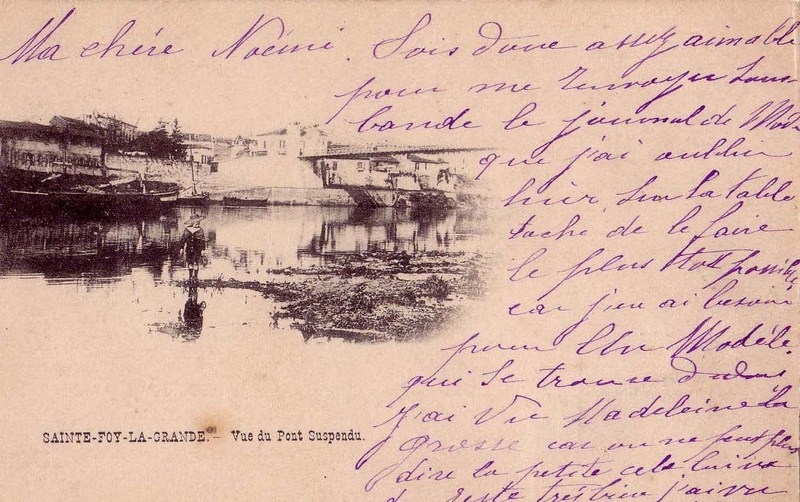 Ma chére Noémi. Sois donc assez aimable
pour me renvoyer sous
bande le journal de Mode
que j'ai oublié
hier sur la table
tache de le faire
le plus tôt possible
car j'en ai besoin
pour Un Modèle
qui se trouve dedans
j'ai vu Madeleine la
grosse car on ne peut plus
dire la petite cela lui va
du reste très bien j'ai vu
SAINTE-FOY-LA-GRANDE. - Vue du Pont Suspendu.